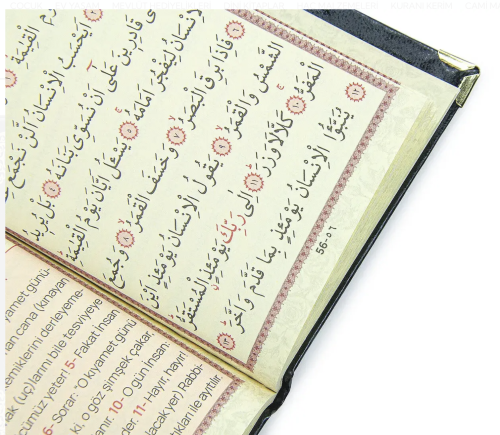 الْقِيٰمَةِ ﴿١﴾
اَيَحْسَبُ الْاِنْسَانُ اَلَّنْ نَجْمَعَ
قَادِرٖينَ عَلٰٓى اَنْ نُسَوِّيَ بَنَانَهُ ﴿٤﴾ بَلْ يُرٖيدُ
الْاِنْسَانُ لِيَفْجُرَ اَمَامَهُ ﴿٥﴾ يَسْـَٔلُ اَيَّانَ يَوْمُ الْقِيٰمَةِ
﴿٦﴾ فَاِذَا بَرِقَ الْبَصَرُ ﴿٧﴾ وَخَسَفَ الْقَمَرُ ﴿٨﴾ وَجُمِعَ
الشَّمْسُ وَالْقَمَرُ ﴿٩﴾ يَقُولُ الْاِنْسَانُ يَوْمَئِذٍ اَيْنَ
الْمَفَرُّ ﴿١٠﴾ كَلَّا لَا وَزَرَ ﴿١١﴾ اِلٰى رَبِّكَ يَوْمَئِذٍ الْمُسْتَقَرُّ
﴿١٢﴾ يُنَبَّؤُا الْاِنْسَانُ يَوْمَئِذٍ بِمَا قَدَّمَ وَاَخَّرَ ﴿١٣﴾
56-٥٦
yamet günü-
an cana (kınayan
emiklerini derleyeme-
ak (uç)larını bile tesviyeye
cümüz yeter! 5- Fakat insan
6- Sorar: "O kıyamet günü
ki, o göz şimşek çakar,
anır. 10- O gün insan:
der. 11- Hayır, hayır!
lacak yer) Rabbi-
tıkları ile ayrılır.